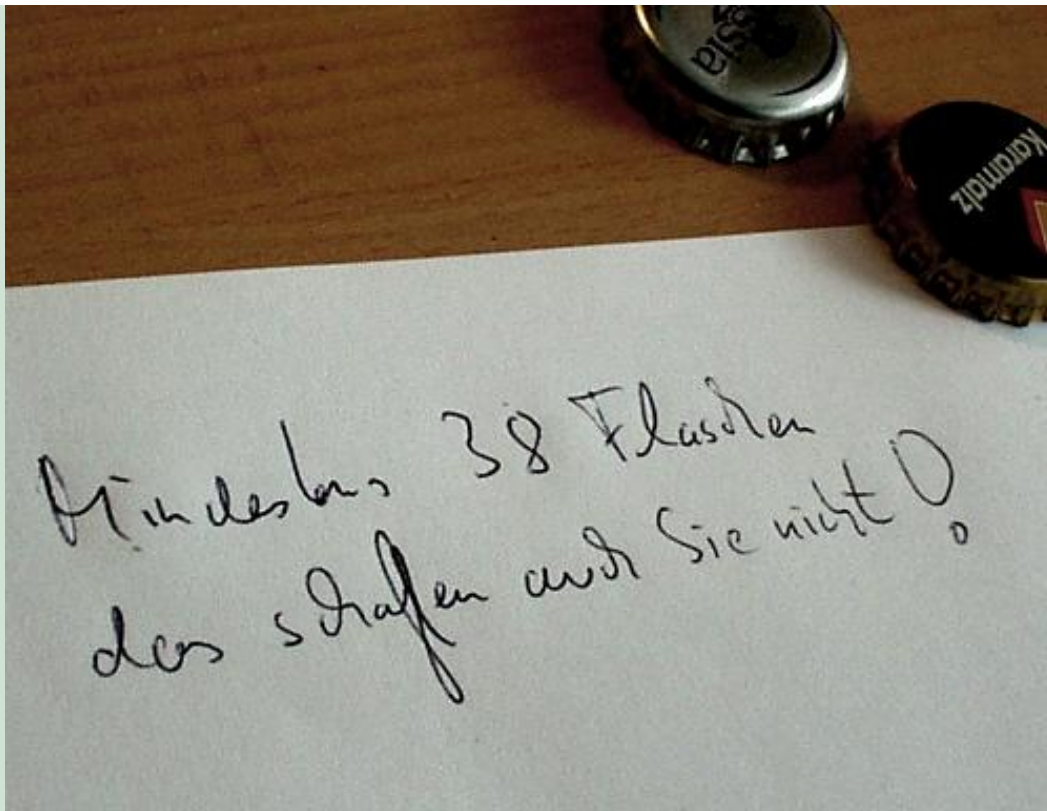 ssia
Karamalz
Mindestens 38 Flaschen
das schaffen auch Sie nicht!